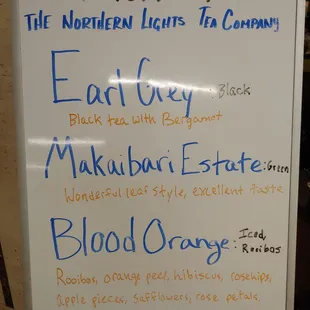 THE NORTHERN LIGHTS TEA COMPANY
Earl Grey : Black
Black tea with Bergamot
Makaibari Estate : Green
Wonderful leaf style, excellent taste
Blood Orange : Iced,
Rooibos
Rooibos, orange peel, hibiscus, rosehips,
apple pieces, safflowers, rose petals